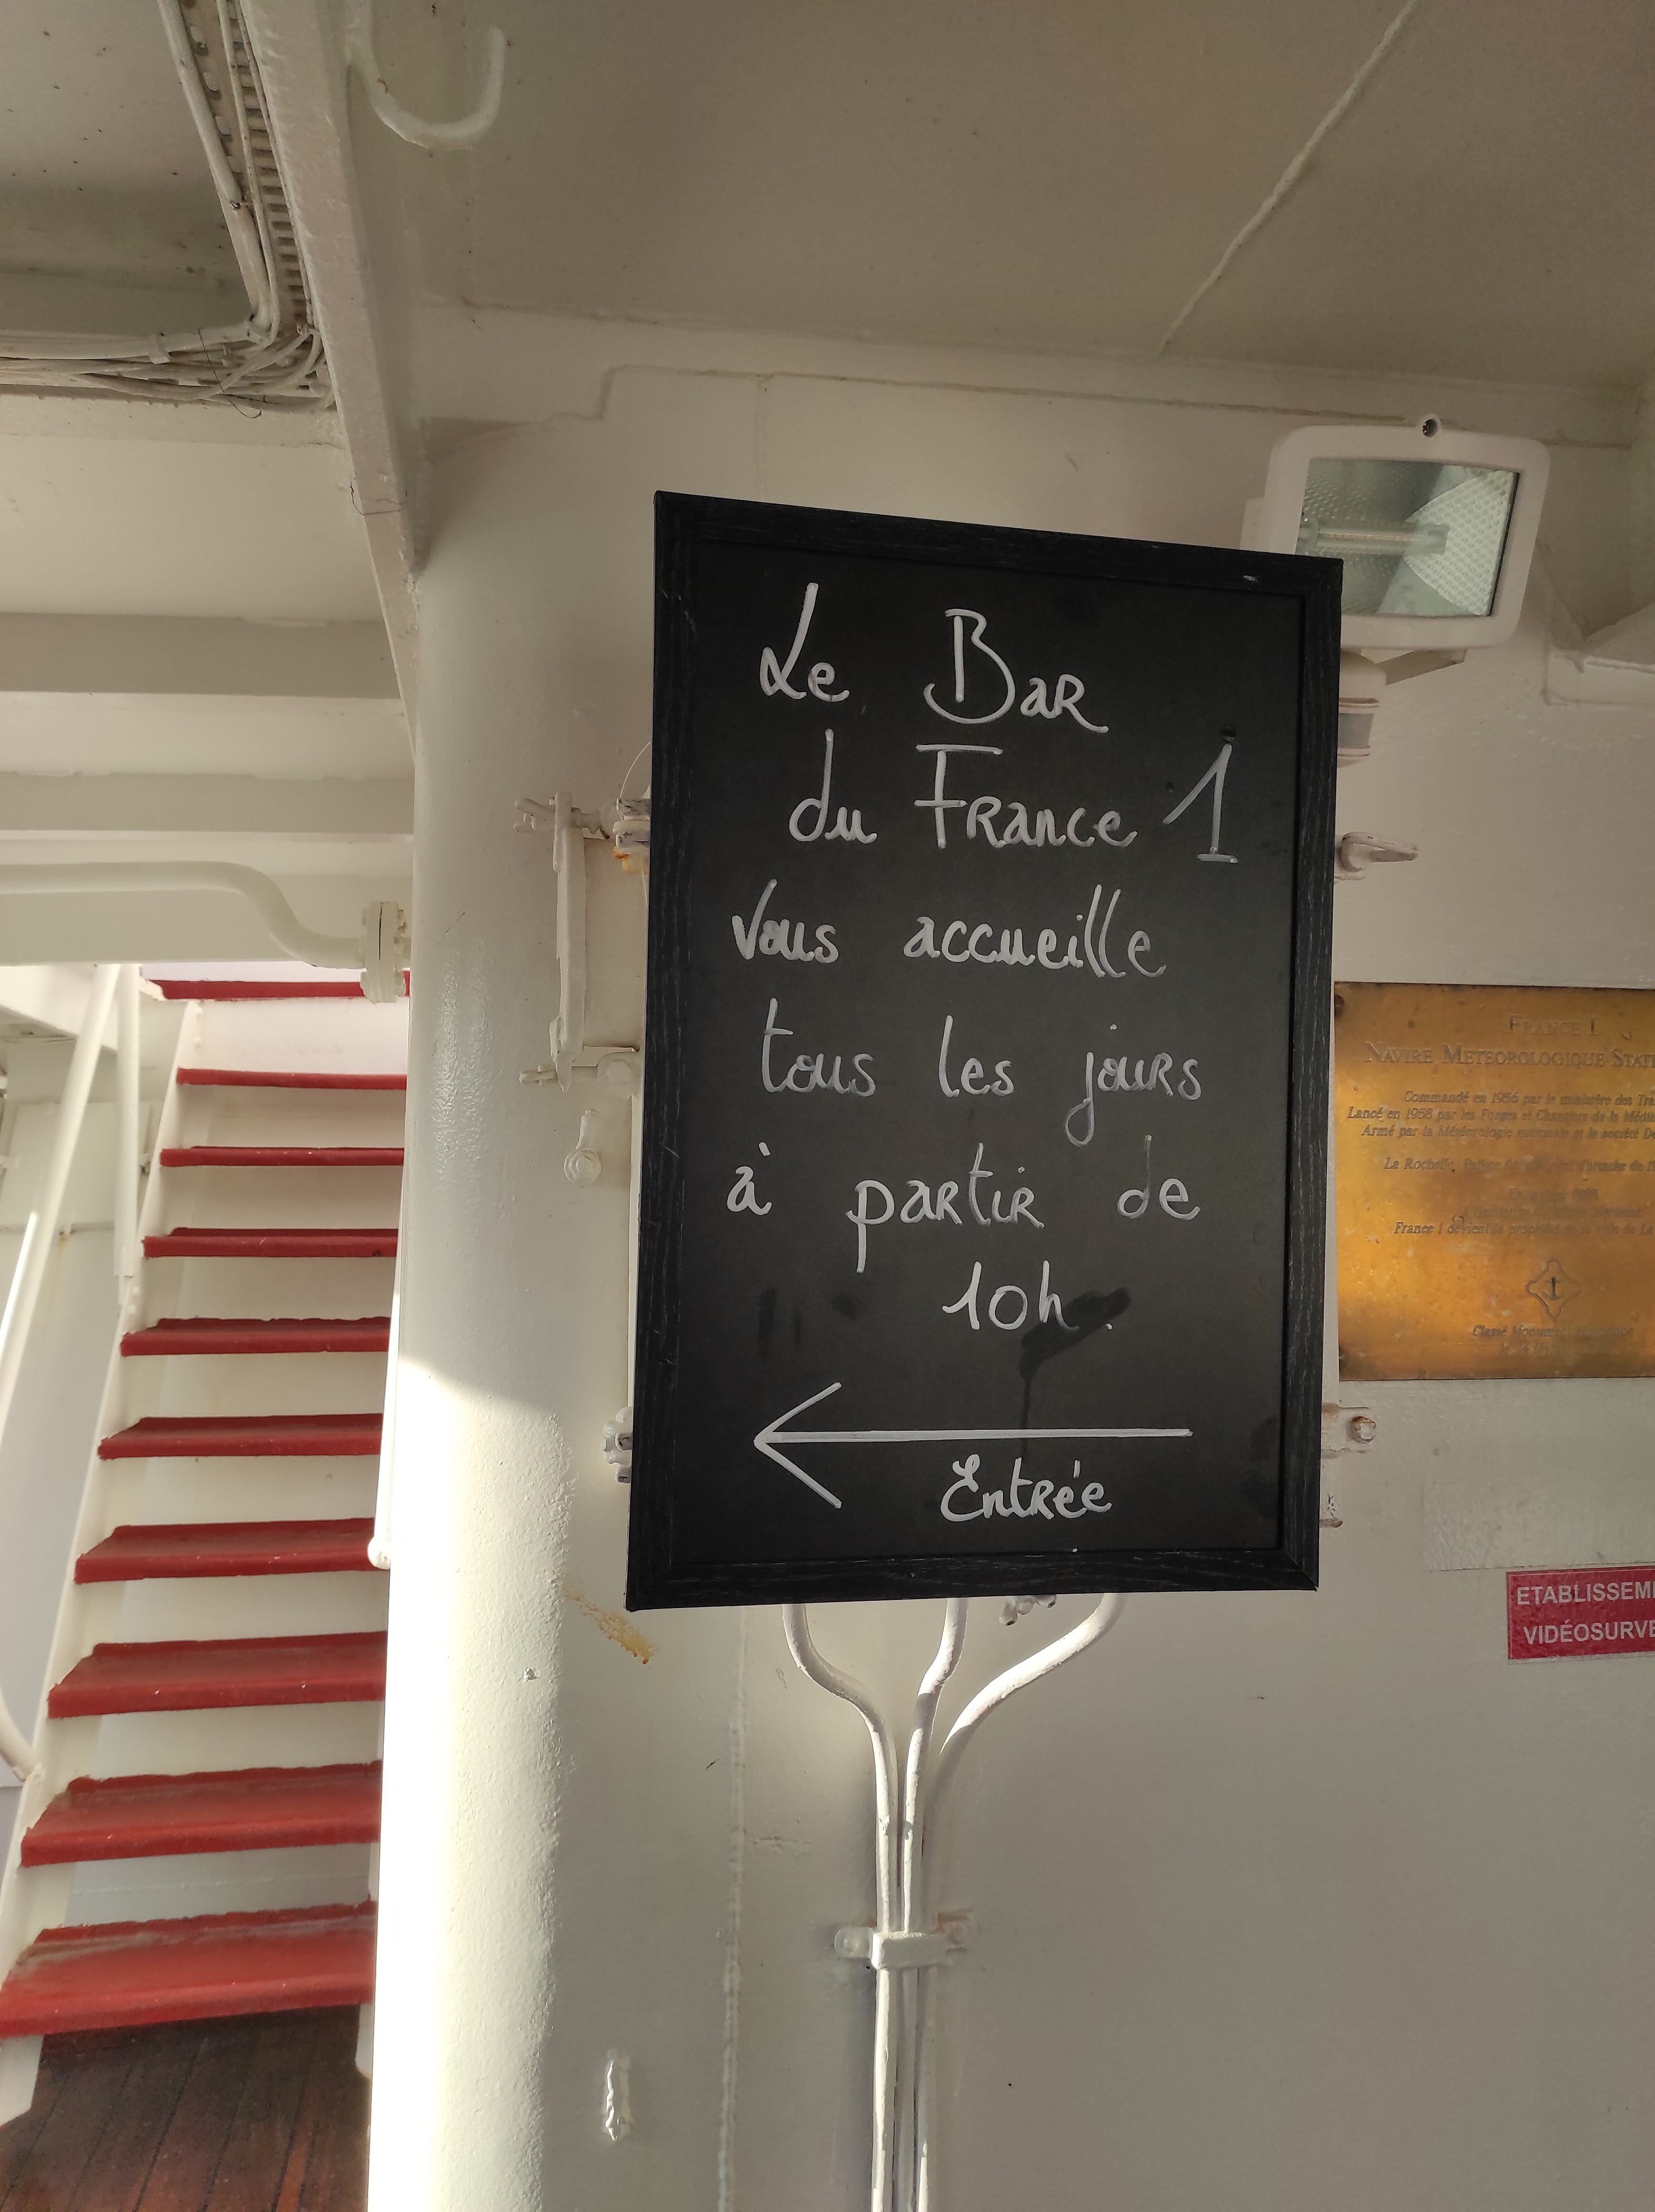 Le Bar
du France 1
Vous accueille
tous les jours
à partir de
10h.
Entrée
FRANCE I
NAVIRE METEOROLOGIQUE STAT
Commandé en 1956 par le ministère des Tra
Lancé en 1958 par les Forges et Chantiers de la Médit
Armé par la Météorologie nationale et la société De
La Rochelle
France I devient la propriété de la ville de La
Classé Monument Historique
ETABLISSEM
VIDÉOSURVE